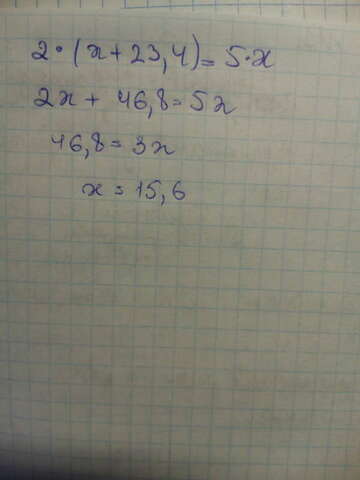 2·(x+23,4)=5·x
2x+46,8=5x
46,8=3x
x=15,6